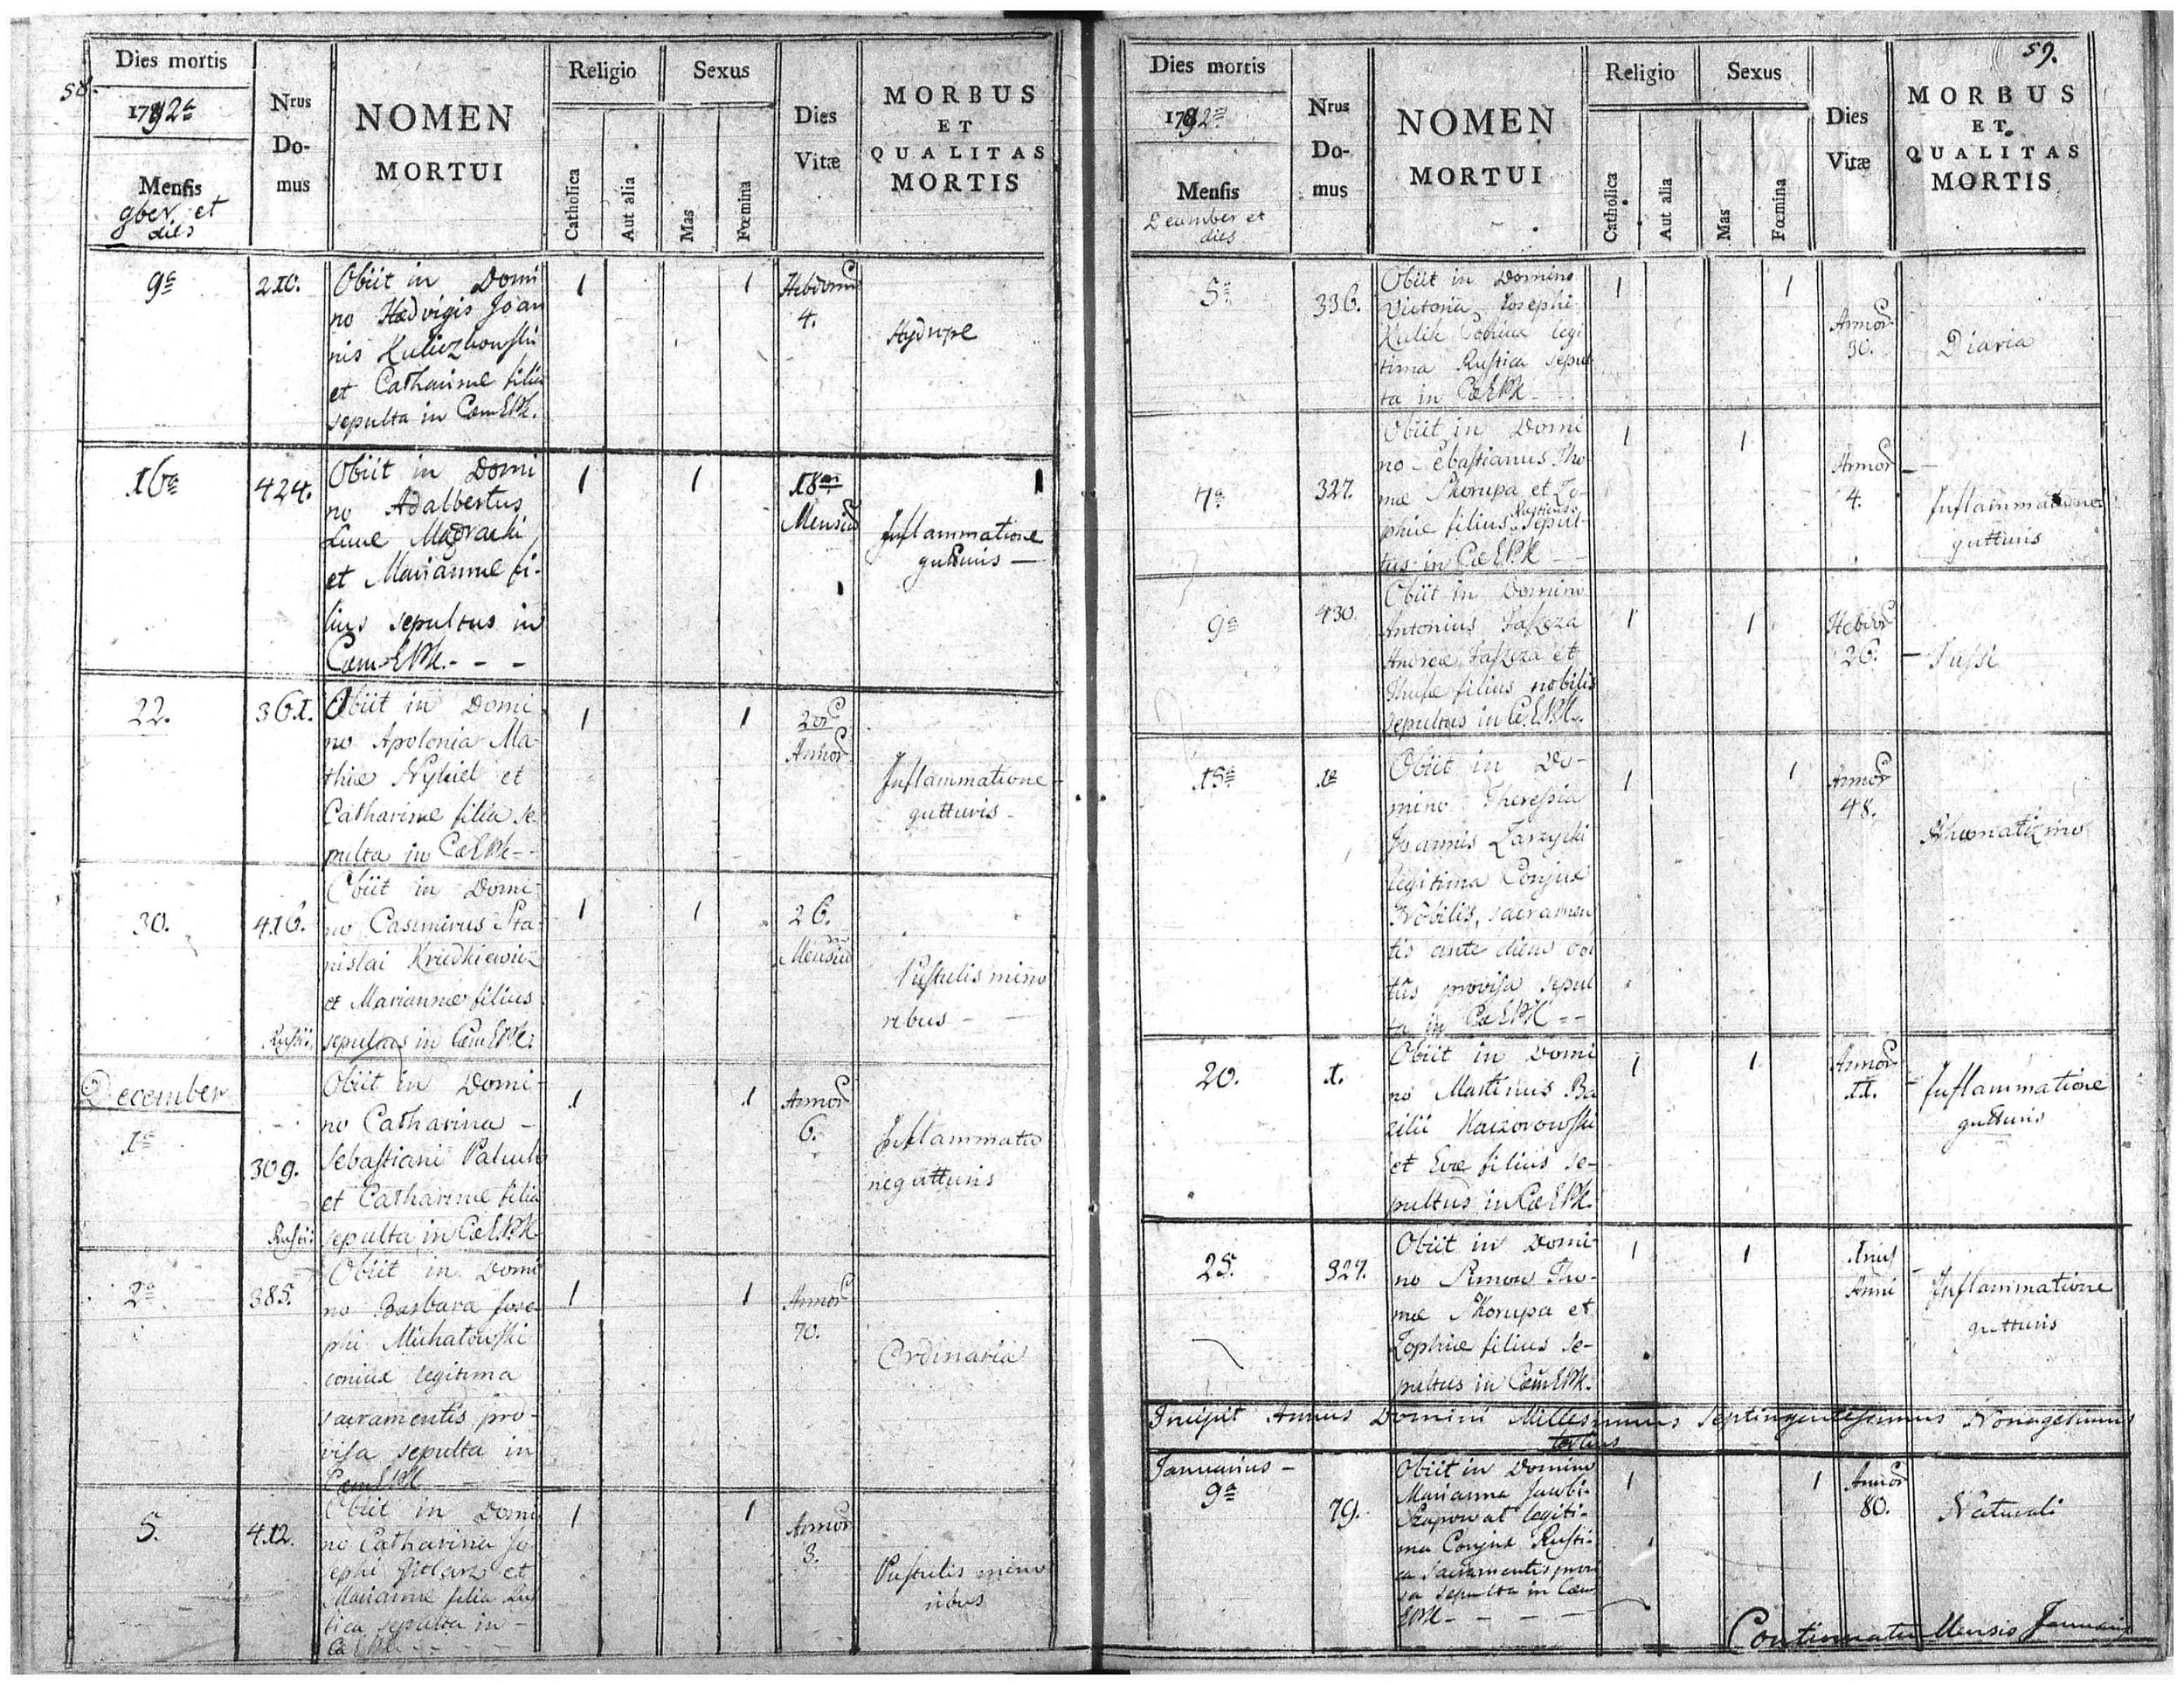 58.
Dies mortis
1792a
Mensis
9ber et
dies
Nrus
Do-
mus
NOMEN
MORTUI
Religio
Catholica
Aut alia
Sexus
Mas
Fœmina
Dies
Vitæ
MORBUS
ET
QUALITAS
MORTIS
9a
210.
Obiit in Domi
no Hedvigis Joan
nis
et Catharinæ filia
sepulta in Cœm
1
1
4.
16a
424.
Obiit in Domi
no Adalbertus
Lucæ Madracki
et Mariannæ fi-
lius sepultus in
Cœm
1
1
18
Mensiu
Inflammatione
gutturis —
22.
361.
Obiit in Domi
no Apolonia Ma-
thiæ Nykiel et
Catharinæ filia se
pulta in Cœ
1
1
2or
Annor
Inflammatione
gutturis -
30.
416.
Obiit in Domi-
no Casimirus Sta-
nislai
et Mariannæ filius
sepultus in Cœm
1
1
26.
Mensiu
Pustulis mino
ribus -
December
1a
309.
Obiit in Domi-
no Catharina -
Sebastiani
et Catharinæ filia
sepulta in Cœ
1
1
Annor
6.
Inflammatio
ne gutturis
2a
385.
Obiit in Domi
no Barbara Jose-
phi Michałowski
coniux legitima
sacramentis pro-
visa sepulta in
Cœm
1
1
Annor
70.
Ordinaria
5.
412.
Obiit in Domi
no Catharina Jo
ephi et
Mariannæ filia Rus
tica sepulta in -
Cœ
1
1
Annor
3.
Pustulis mino
ribus
59.
Dies mortis
1792a
Mensis
December et
dies
Nrus
Do-
mus
NOMEN
MORTUI
Religio
Catholica
Aut alia
Sexus
Mas
Fœmina
Dies
Vitæ
MORBUS
ET
QUALITAS
MORTIS
5a
336.
Obiit in Domino
Victoria Josephi
Kulik legi
tima Rustica sepul
ta in Cœ
1
1
Annor
30.
Diaria
327.
Obiit in Domi
no Sebastianus Tho
mæ Skorupa et Zo-
phiæ filius Rusticus sepul-
tus in Cœ
1
1
Annor
4.
Inflammatione
gutturis
9a
430.
Obiit in Domino
Antonius
Andreæ et
filius nobilis
sepultus in Cœ
1
1
26.
Tussi
15a
1a
Obiit in Do-
mino Theressia
Joannis Zarzycki
legitima Conjux
Nobilis, sacramen
tis ante diem
provisa sepul
ta in Cœ
1
1
Annor
48.
20.
1.
Obiit in Domi
no Martinus Ba
zilii Kaczorowski
et Evæ filius se-
pultus in Cœ
1
1
Annor
11.
Inflammatione
gutturis
25.
327.
Obiit in Domi-
no Simon Tho-
mæ Skorupa et
Zophiæ filius se-
pultus in Cœm
1
1
Unius
Anni
Inflammatione
gutturis
Incipit Annus Domini Millesimus Septingentesimus Nonagesimus
tertius
Januarius -
9a
79.
Obiit in Domino
Marianna Jacobi
legiti-
ma Conjux Rusti-
ca sacramentis provi
sa sepulta in Cœm
1
1
Annor
80.
Naturali
Continuatur Mensis Januarii